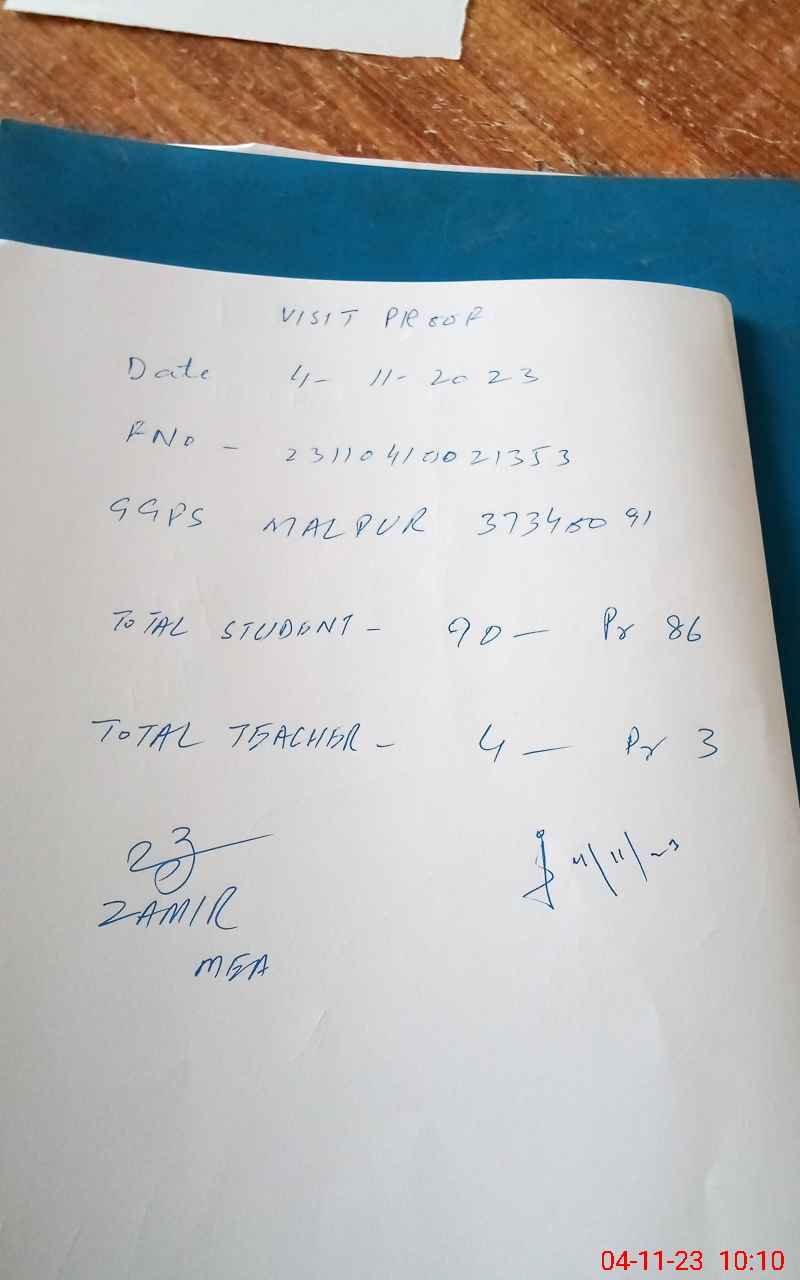 VISIT PROOF
Date 4-11-2023
FNO - 23110410021353
GGPS MALPUR 37340091
TOTAL STUDENT - 90 - Pr 86
TOTAL TEACHER - 4 - Pr 3
4/11/23
ZAMIR
MEA
04-11-23 10:10